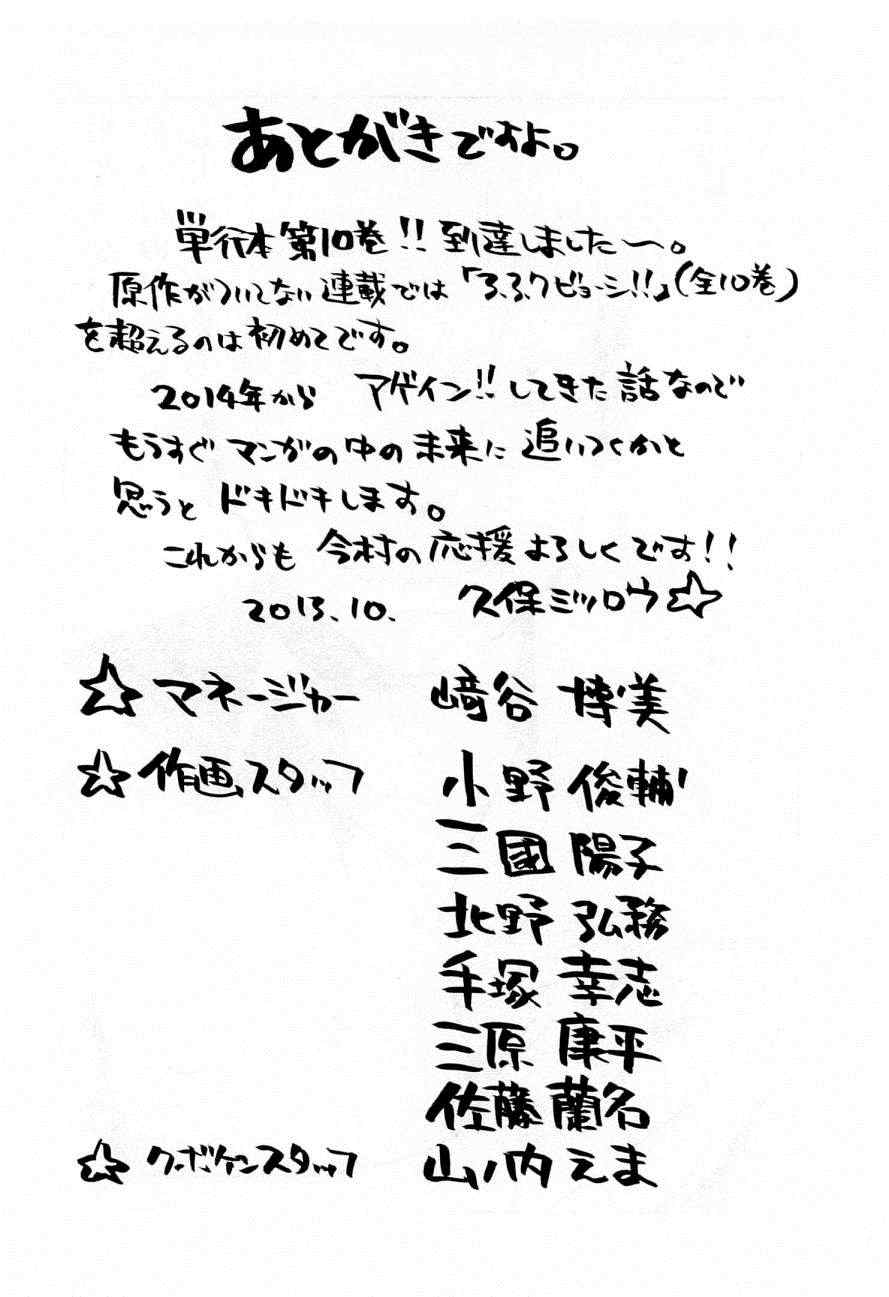 あとがきですよ。
単行本第10巻!!到達しました〜。
原作がついてない連載では「3.3.7ビョーシ!!」(全10巻)
を超えるのは初めてです。
2014年から アゲイン!!してきた話なので
もうすぐマンガの中の未来に追いつくかと
思うとドキドキします。
これからも 今村の応援よろしくです!!
2013.10. 久保ミツロウ☆
☆マネージャー 﨑谷 博美
☆作画スタッフ 小野 俊輔
三國 陽子
北野 弘務
手塚 幸志
三原 康平
佐藤 蘭名
☆クボケンスタッフ 山ノ内 えま